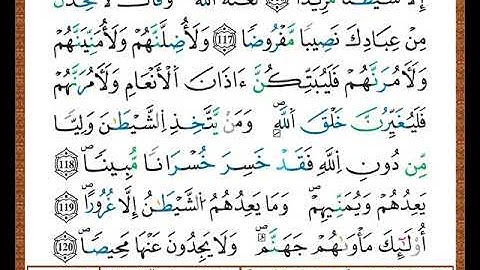 إِلَّا شَيْطَٰنًا مَّرِيدًا لَّعَنَهُ ٱللَّهُ ۘ وَقَالَ لَأَتَّخِذَنَّ
مِنْ عِبَادِكَ نَصِيبًا مَّفْرُوضًا ‎117‎ وَلَأُضِلَّنَّهُمْ وَلَأُمَنِّيَنَّهُمْ
وَلَأٓمُرَنَّهُمْ فَلَيُبَتِّكُنَّ ءَاذَانَ ٱلْأَنْعَٰمِ وَلَأٓمُرَنَّهُمْ
فَلَيُغَيِّرُنَّ خَلْقَ ٱللَّهِ ۚ وَمَن يَتَّخِذِ ٱلشَّيْطَٰنَ وَلِيًّا
مِّن دُونِ ٱللَّهِ فَقَدْ خَسِرَ خُسْرَانًا مُّبِينًا ‎118‎
يَعِدُهُمْ وَيُمَنِّيهِمْ ۖ وَمَا يَعِدُهُمُ ٱلشَّيْطَٰنُ إِلَّا غُرُورًا ‎119‎
أُو۟لَٰٓئِكَ مَأْوَىٰهُمْ جَهَنَّمُ ۖ وَلَا يَجِدُونَ عَنْهَا مَحِيصًا ‎120‎